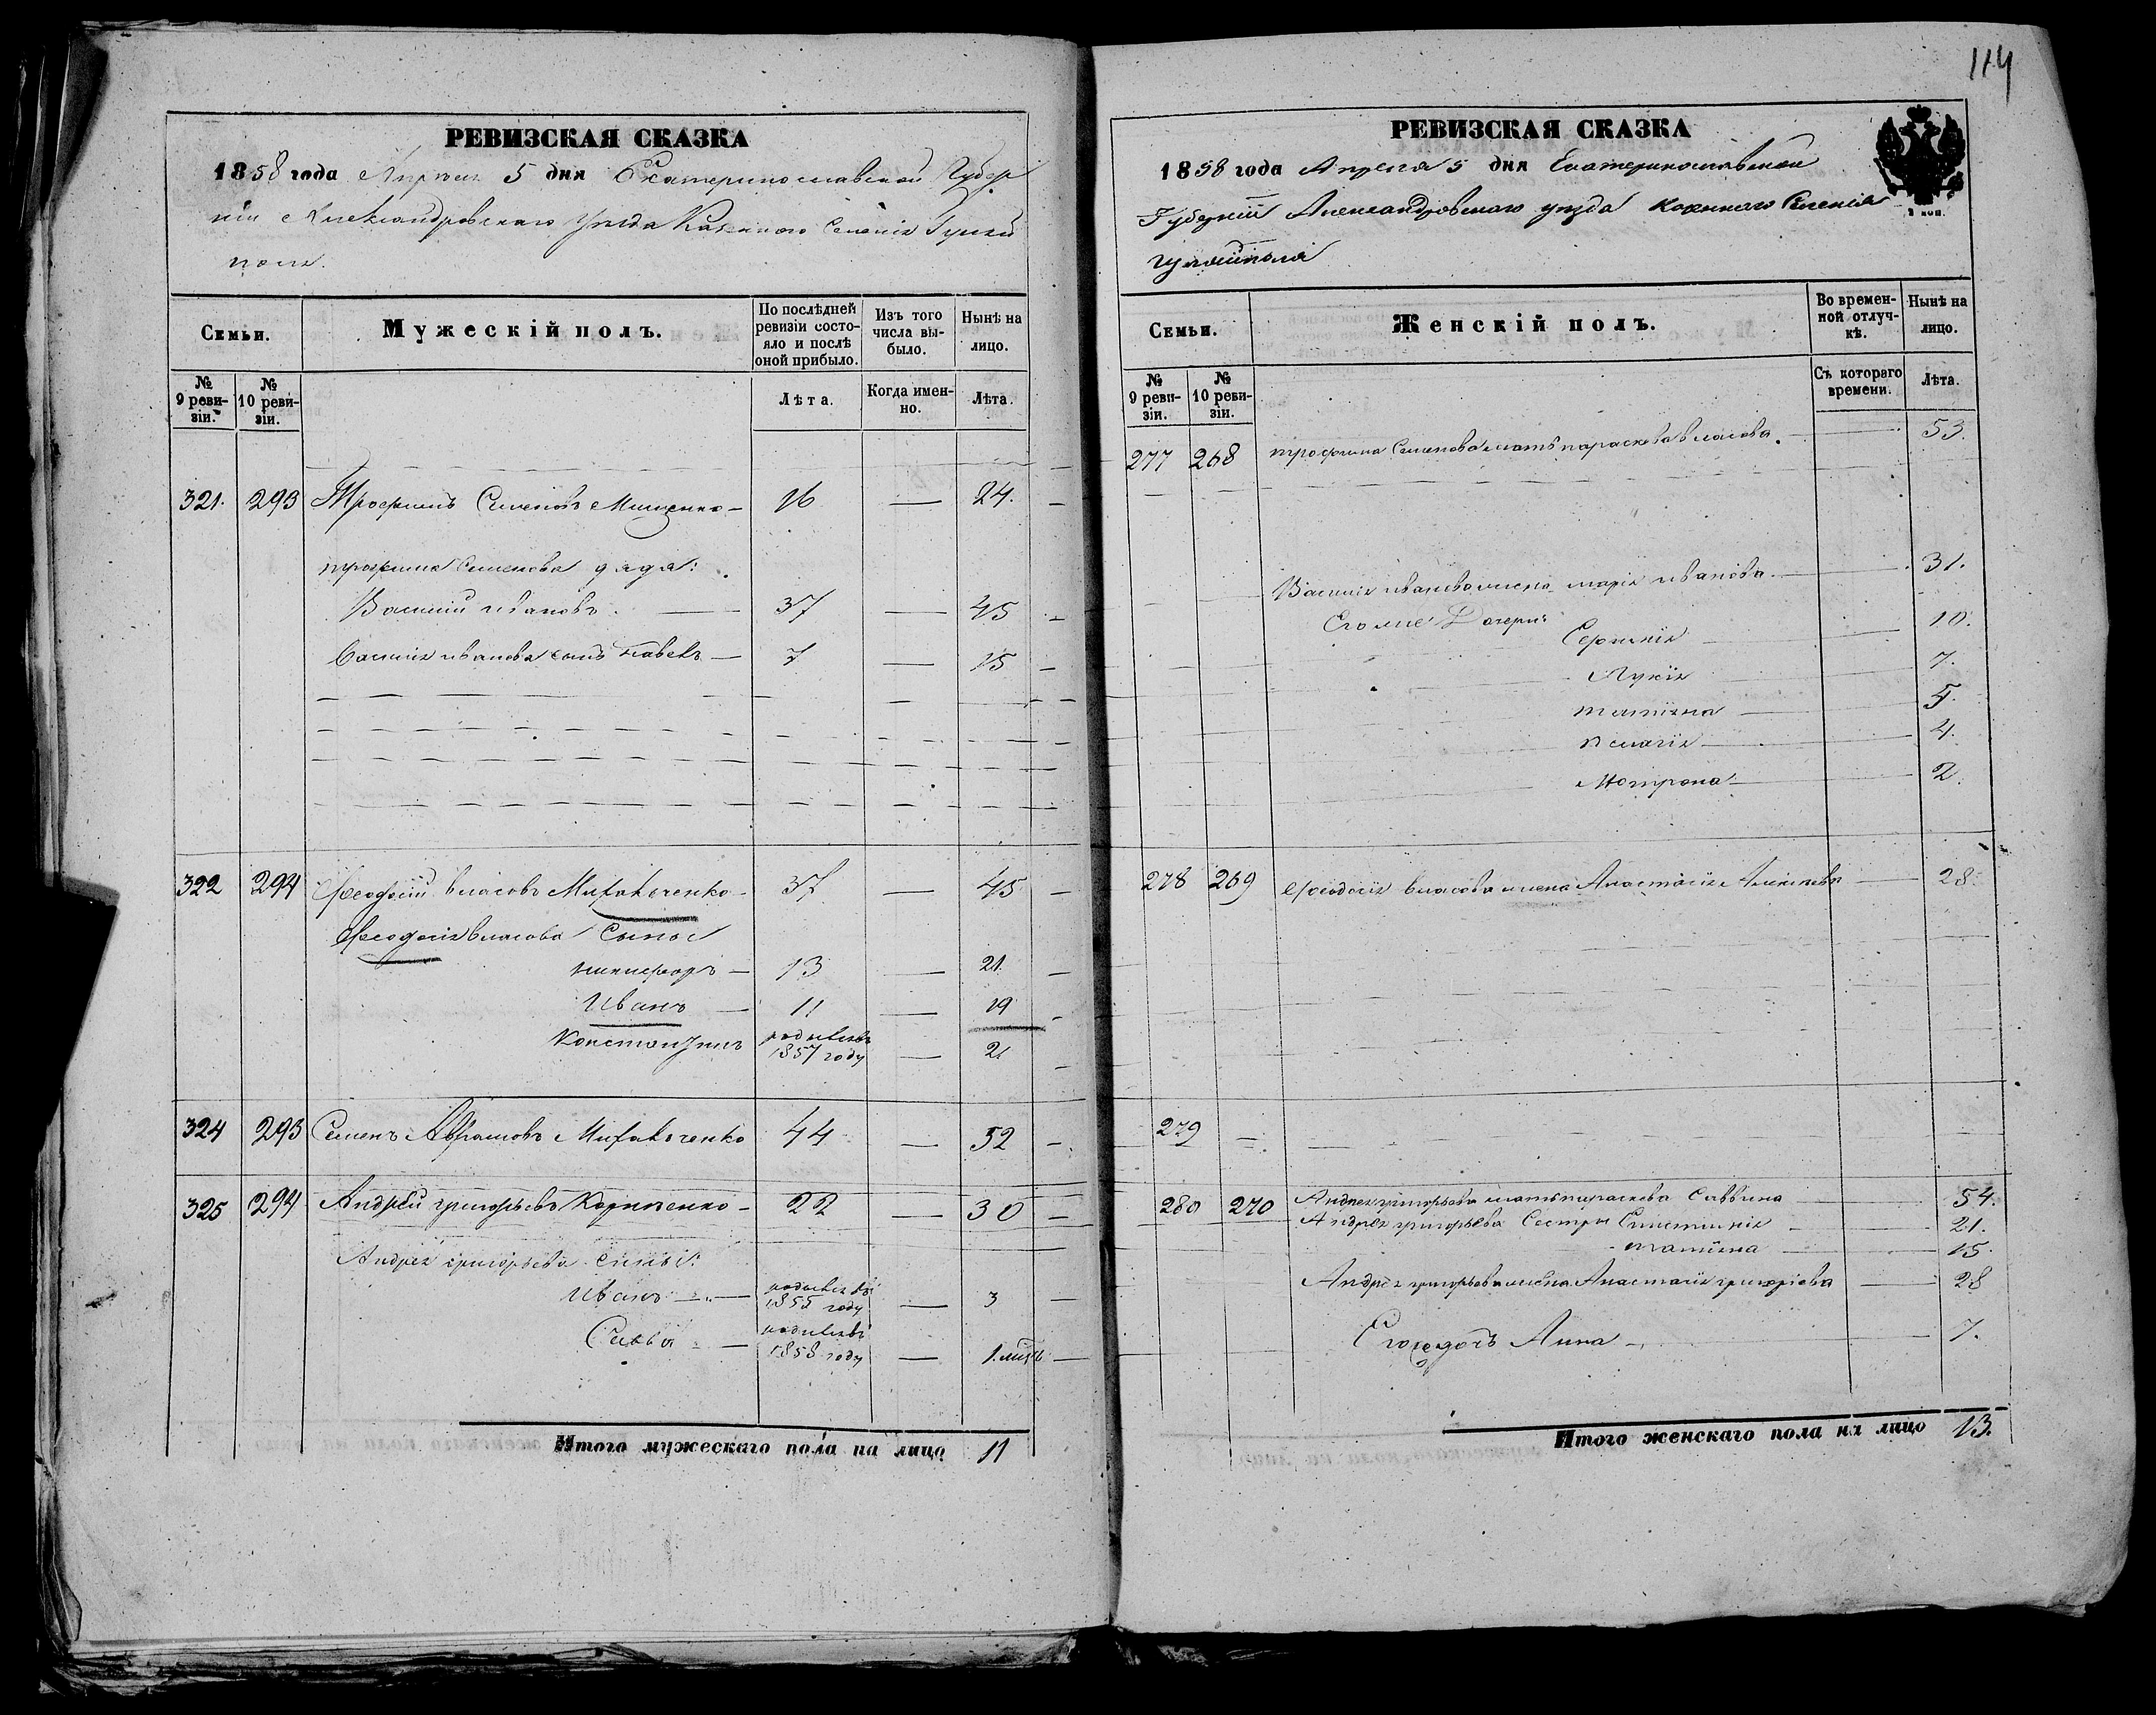 114
РЕВИЗСКАЯ СКАЗКА
1858 года Апреля 5 дня Екатеринославской Губер
нии Александровского Уезда Казенного Селения Гуляй
поля.
Семьи.
Мужескій полъ.
По послѣдней ревизіи состояло и послѣ оной прибыло.
Изъ того числа выбыло.
Нынѣ на лицо.
№ 9 ревизіи.
№ 10 ревизіи.
Лѣта.
Когда именно.
Лѣта.
321. 293 Трофимъ Семеновъ Мищенко 16 — 24.
трофима Семенова дядя:
Василий ивановъ. — 37 — 45
Василия иванова сынъ павелъ — 7 — 15
322 294 Феодосий власовъ Михальченко 37 — 45
Феодосия власова Сыны
никифоръ — 13 — 21
Иванъ — 11 — 19
Константинъ родился въ 1857 году —
324 293 Семенъ Аврамовъ Михальченко 44 — 52
325 294 Андрей григорьевъ Корниенко 22 — 30
Андрея григорьева сыны:
Иванъ — родился въ 1855 году — 3
Савва — родился въ 1858 году — 1.
Итого мужескаго пола на лицо 11
РЕВИЗСКАЯ СКАЗКА
1858 года Апреля 5 дня Екатеринославской
Губернии Александровского уезда казенного Селения
гуляйполя
2 коп.
Семьи.
Женскій полъ.
Во временной отлучкѣ.
Нынѣ на лицо.
№ 9 ревизіи.
№ 10 ревизіи.
Съ котораго времени.
Лѣта.
277 268 трофима Семенова мать параскева власова. — 53.
Василия иванова жена мария иванова. — 31.
Его же Дочери:
— 10.
Лукия 7.
татияна — 5.
пелагия — 4.
Мотрона — 2.
278 269 Феодосия власова жена Анастасия Алексеева — 28.
279 —
280 270 Андрея григорьева мать параскева Саввина — 54.
Андрея григорьева Сестры — 21.
татияна — 15.
Андрея григорьева жена Анастасия григориева — 28
Его дочь Анна — 7.
Итого женскаго пола на лицо 13.